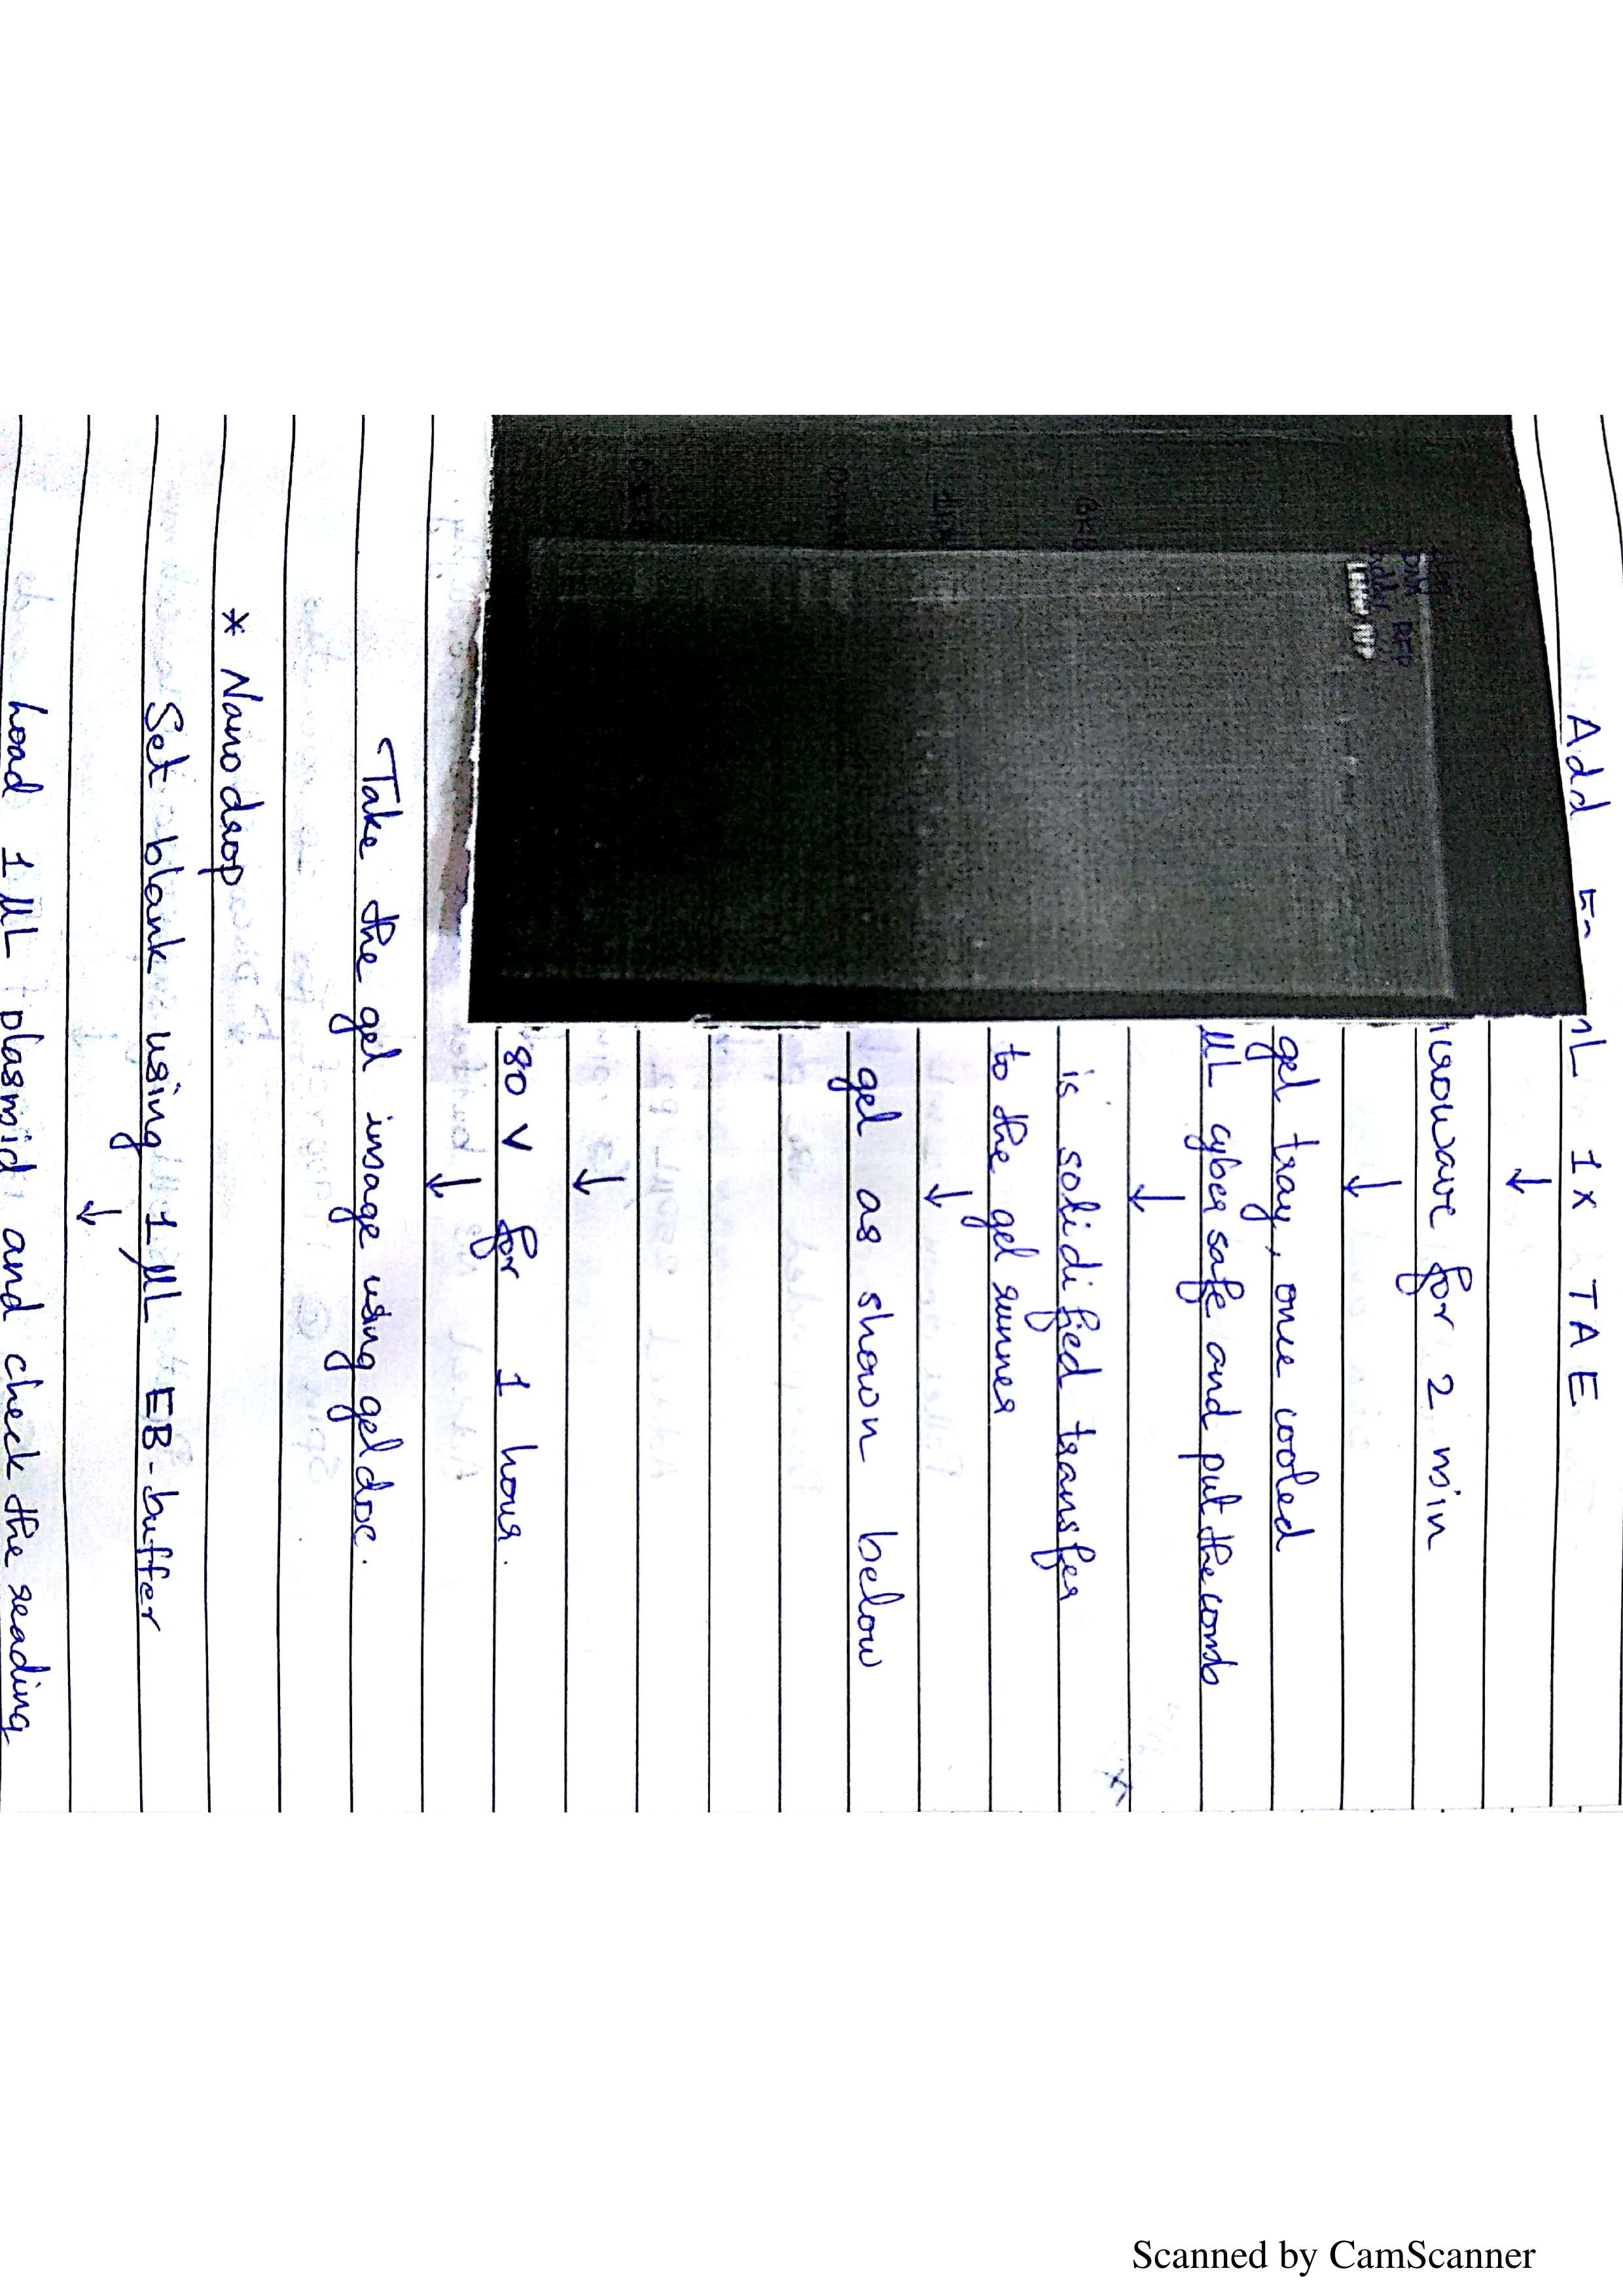 Add En mL 1X TAE
↓
icrowave for 2 min
↓
gel tray, once cooled
µL cyber safe and put the comb
↓
is solidified transfer
to the gel runner
↓
gel as shown below
↓
80 V for 1 hour.
↓
Take the gel image using gel doc.
* Nanodrop
Set blank using 1 µL EB-buffer
↓
Load 1 µL plasmid and check the reading
DNA
RFP
Scanned by CamScanner